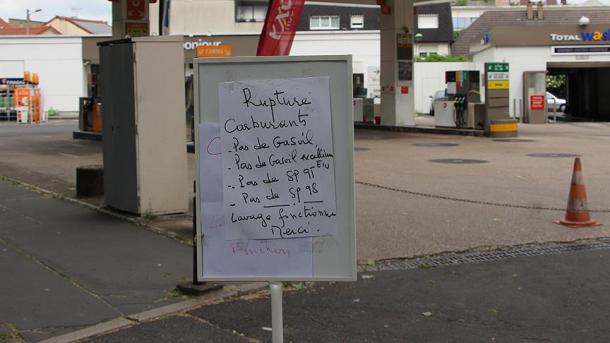 Bonjour
TOTAL Wash
Rupture
Carburants
- Pas de Gasoil
- Pas de Gasoil excellium
- Pas de SP 95 E10
- Pas de SP 98
Lavage fonctionne
Merci.